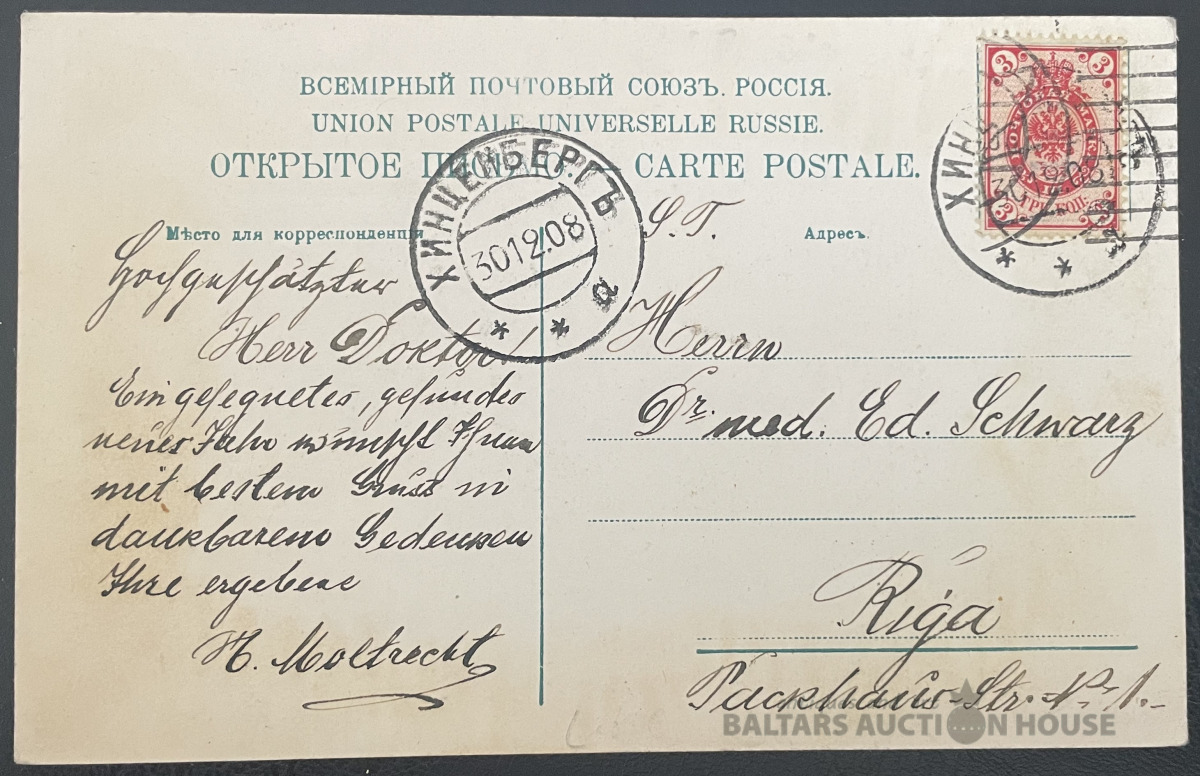 ВСЕМІРНЫЙ ПОЧТОВЫЙ СОЮЗЪ. РОССІЯ.
UNION POSTALE UNIVERSELLE RUSSIE.
ОТКРЫТОЕ ПИСЬМО. CARTE POSTALE.
Мѣсто для корреспонденціи
Адресъ.
ХИНЦЕНБЕРГЪ
30 12.08
3 3
3 3
ТРИ КОП.
ХИНЦ
Hochgeschätzter
Herr Doktor!
Ein gesegnetes, gesundes
neues Jahr wünscht Ihnen
mit bestem Gruss in
dankbarem Gedenken
Ihre ergebene
H. Moltrecht
S. T.
Herrn
Dr. med. Ed. Schwarz
Riga
Packhaus-Str. № 1.
BALTARS AUCTION HOUSE